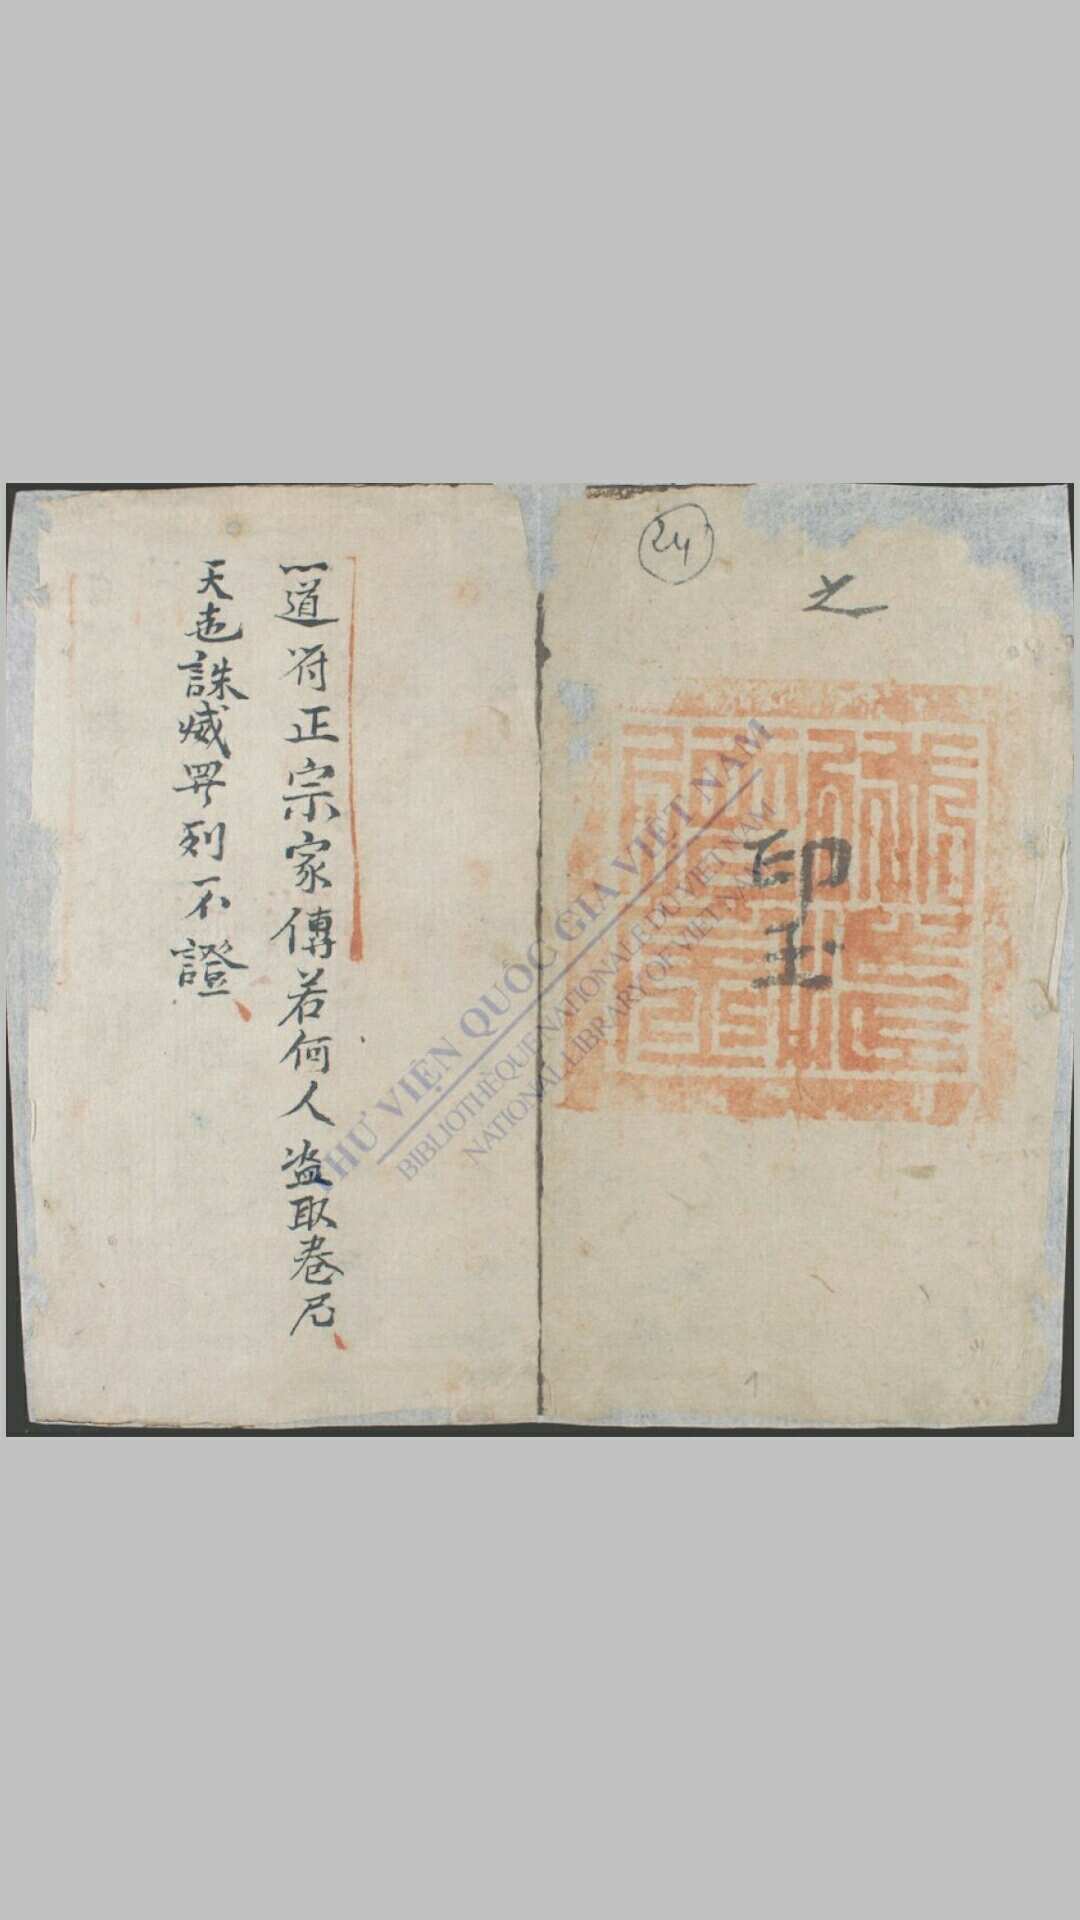 24
之
印玉
道符正宗家傳若何人盗取卷尼
天地誅威畀列不證
THƯ VIỆN QUỐC GIA VIỆT NAM
BIBLIOTHÈQUE NATIONALE DU VIET NAM
NATIONAL LIBRARY OF VIET NAM
1